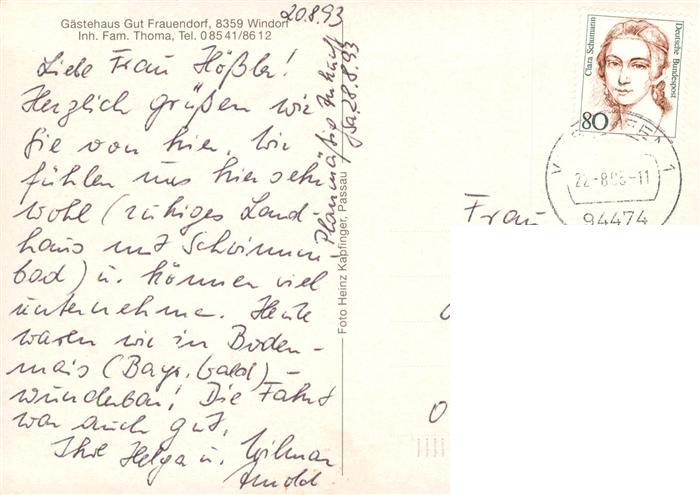 20.8.93
Gästehaus Gut Frauendorf, 8359 Windorf
Inh. Fam. Thoma, Tel. 08541/8612
Liebe Frau Hößler!
Herzlich grüßen wir
Sie von hier. Wir
fühlen uns hier sehr
wohl (ruhiges Land
haus mit Schwimm-
bad) u. können viel
unternehmen. Heute
waren wir in Boden-
mais (Bayr. Wald) -
wunderbar! Die Fahrt
war auch gut.
Ihre Helga u. Wilmar
Arnold
Planmäßige Ankunft
Sa. 28.8.93
Foto Heinz Kapfinger, Passau
Clara Schumann
Deutsche Bundespost
80
22-8.93-11
94474
1
Frau